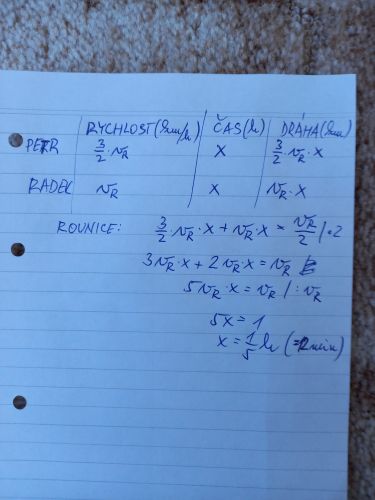 RYCHLOST(km/h) ČAS(h) DRÁHA(km)
PETR 3/2 · vR x 3/2 · vR · x
RADEC vR x vR · x
ROVNICE: 3/2 · vR · x + vR · x = vR/2 / · 2
3vR · x + 2vR · x = vR
5vR · x = vR / : vR
5x = 1
x = 1/5 h (=12min)